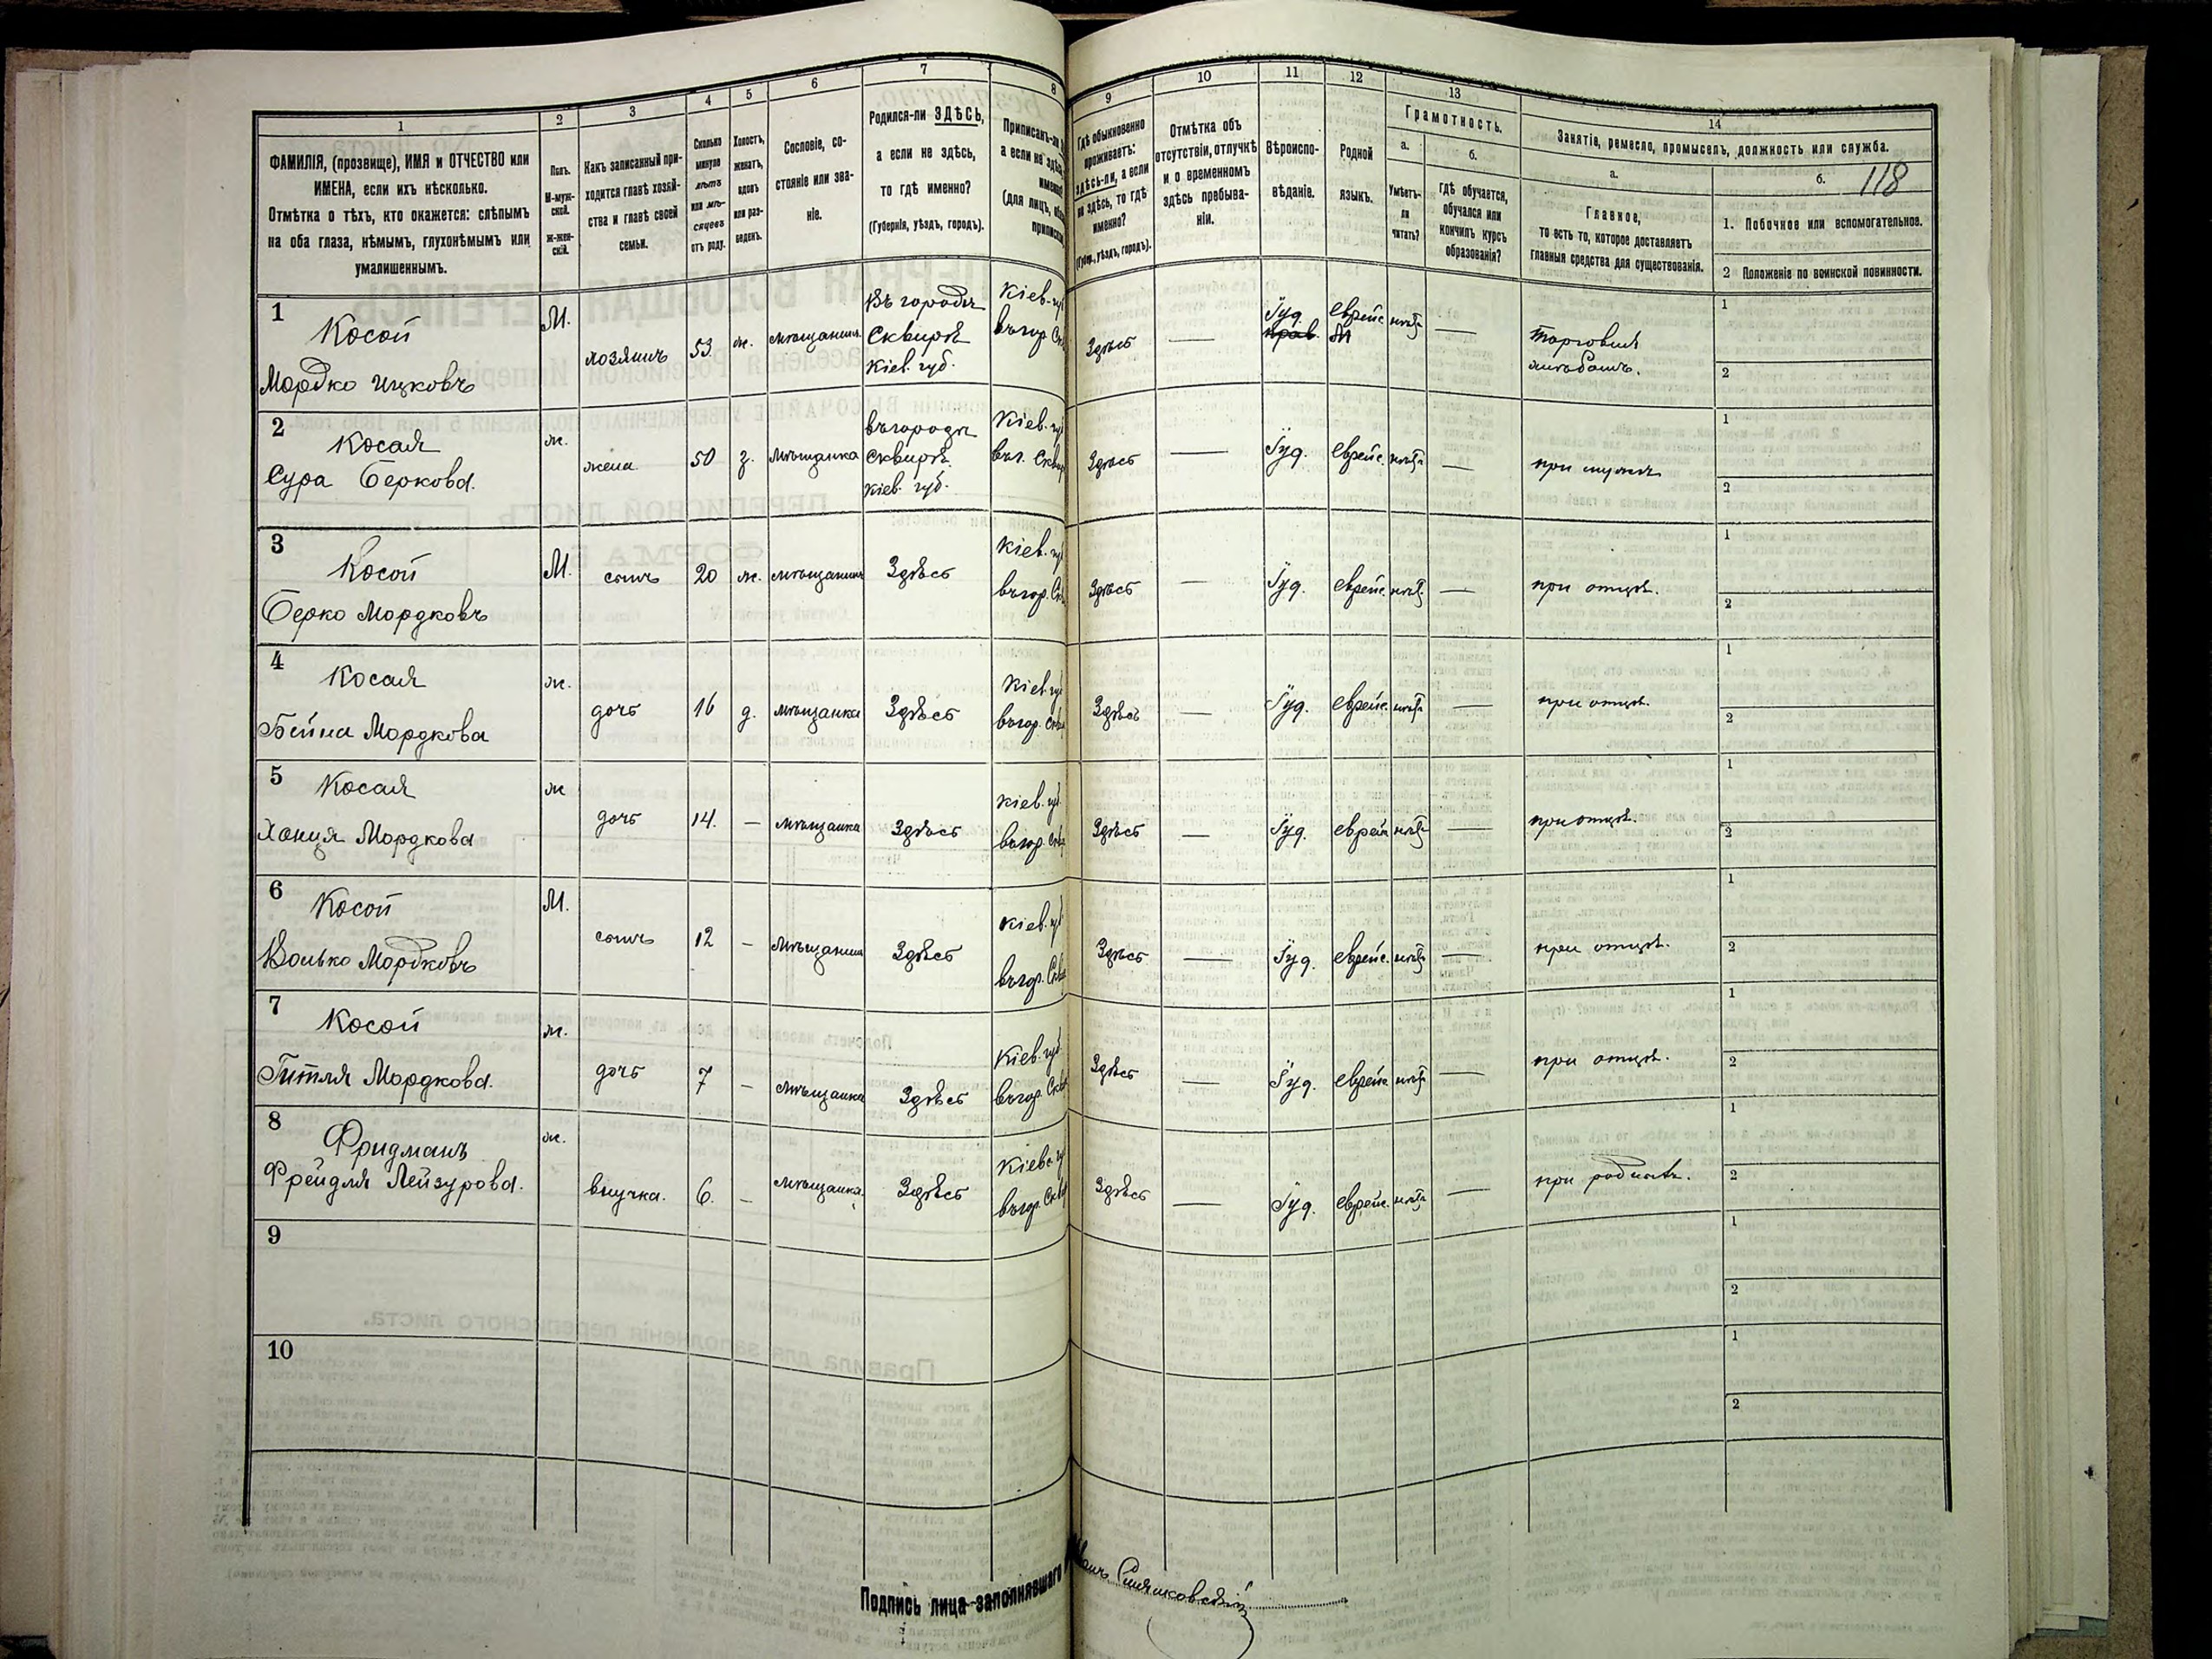 1
ФАМИЛІЯ, (прозвище), ИМЯ и ОТЧЕСТВО или
ИМЕНА, если ихъ нѣсколько.
Отмѣтка о тѣхъ, кто окажется: слѣпымъ
на оба глаза, нѣмымъ, глухонѣмымъ или
умалишеннымъ.
2
Полъ.
М-муж-
ской.
ж-жен-
скій.
3
Какъ записанный при-
ходится главѣ хозяй-
ства и главѣ своей
семьи.
4
Сколько
минуло
лѣтъ
или мѣ-
сяцевъ
отъ роду.
5
Холостъ,
женатъ,
вдовъ
или раз-
веденъ.
6
Сословіе, со-
стояніе или зва-
ніе.
7
Родился-ли ЗДѢСЬ,
а если не здѣсь,
то гдѣ именно?
(Губернія, уѣздъ, городъ).
8
Приписанъ-ли
а если не здѣсь
именно
(для лицъ,
9
Гдѣ обыкновенно
проживаетъ:
здѣсь-ли, а если
не здѣсь, то гдѣ
именно?
(Губер., уѣздъ, городъ).
10
Отмѣтка объ
отсутствіи, отлучкѣ
и о временномъ
здѣсь пребыва-
ніи.
11
Вѣроиспо-
вѣданіе.
12
Родной
языкъ.
13
Грамотность.
а.
Умѣетъ-
ли
читать?
б.
Гдѣ обучается,
обучался или
кончилъ курсъ
образованія?
14
Занятіе, ремесло, промыселъ, должность или служба.
а.
Главное,
то есть то, которое доставляетъ
главныя средства для существованія.
б.
118
1. Побочное или вспомогательное.
2 Положеніе по воинской повинности.
1
Косой
Мордко Ицковъ
М.
хозяинъ
53.
ж.
мѣщанин.
Въ городѣ
Сквирѣ
Кіев. губ.
Кіев. гу
въ гор. Ск
Здѣсь
—
Іуд.
прав.
еврейс
—
торговля
хлѣбомъ.
1
2
2
Косая
Сура Беркова.
ж.
жена
50
з.
мѣщанка
въ городѣ
Сквирѣ
Кіев. губ.
Кіев. гу
въ г. Сквир
Здѣсь
—
Іуд.
еврейс.
—
при мужѣ
1
2
3
Косой
Берко Мордковъ
М.
сынъ
20
ж.
мѣщанин
Здѣсь
Кіев. гу
въ гор. Ск
Здѣсь
—
Іуд.
еврейс.
—
при отцѣ.
1
2
4
Косая
Бейна Мордкова
ж.
дочь
16
д.
мѣщанка
Здѣсь
Кіев. гу
въ гор. Скв
Здѣсь
—
Іуд.
еврейс.
—
при отцѣ.
1
2
5
Косая
Ханця Мордкова
ж
дочь
14.
—
мѣщанка
Здѣсь
Кіев. гу
въ гор. Скв
Здѣсь
—
Іуд.
еврей
—
при отцѣ.
1
2
6
Косой
Волько Мордковъ
М.
сынъ
12
—
мѣщанин
Здѣсь
Кіев. гу
въ гор. Скв
Здѣсь
—
Іуд.
еврейс.
—
при отцѣ.
1
2
7
Косой
Гитля Мордкова.
ж.
дочь
7
—
мѣщанка
Здѣсь
Кіев. губ
въ гор. Скв
Здѣсь
—
Іуд.
еврейс
—
при отцѣ.
1
2
8
Фридманъ
Фрейдля Лейзурова.
ж.
внучка.
6.
—
мѣщанка.
Здѣсь
Кіевс гу
въ гор. Скв
Здѣсь
—
Іуд.
еврейс.
—
1
2
9
1
2
10
1
2
Подпись лица заполнявшаго